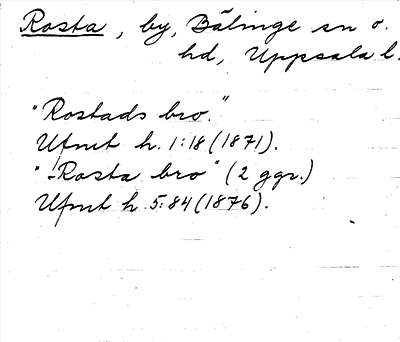 Rosta, by, Bälinge sn o.
hd, Uppsala l.
"Rostads bro."
Ufmt h. 1:18 (1871).
"-Rosta bro" (2 ggr.)
Ufmt h 5:84 (1876).